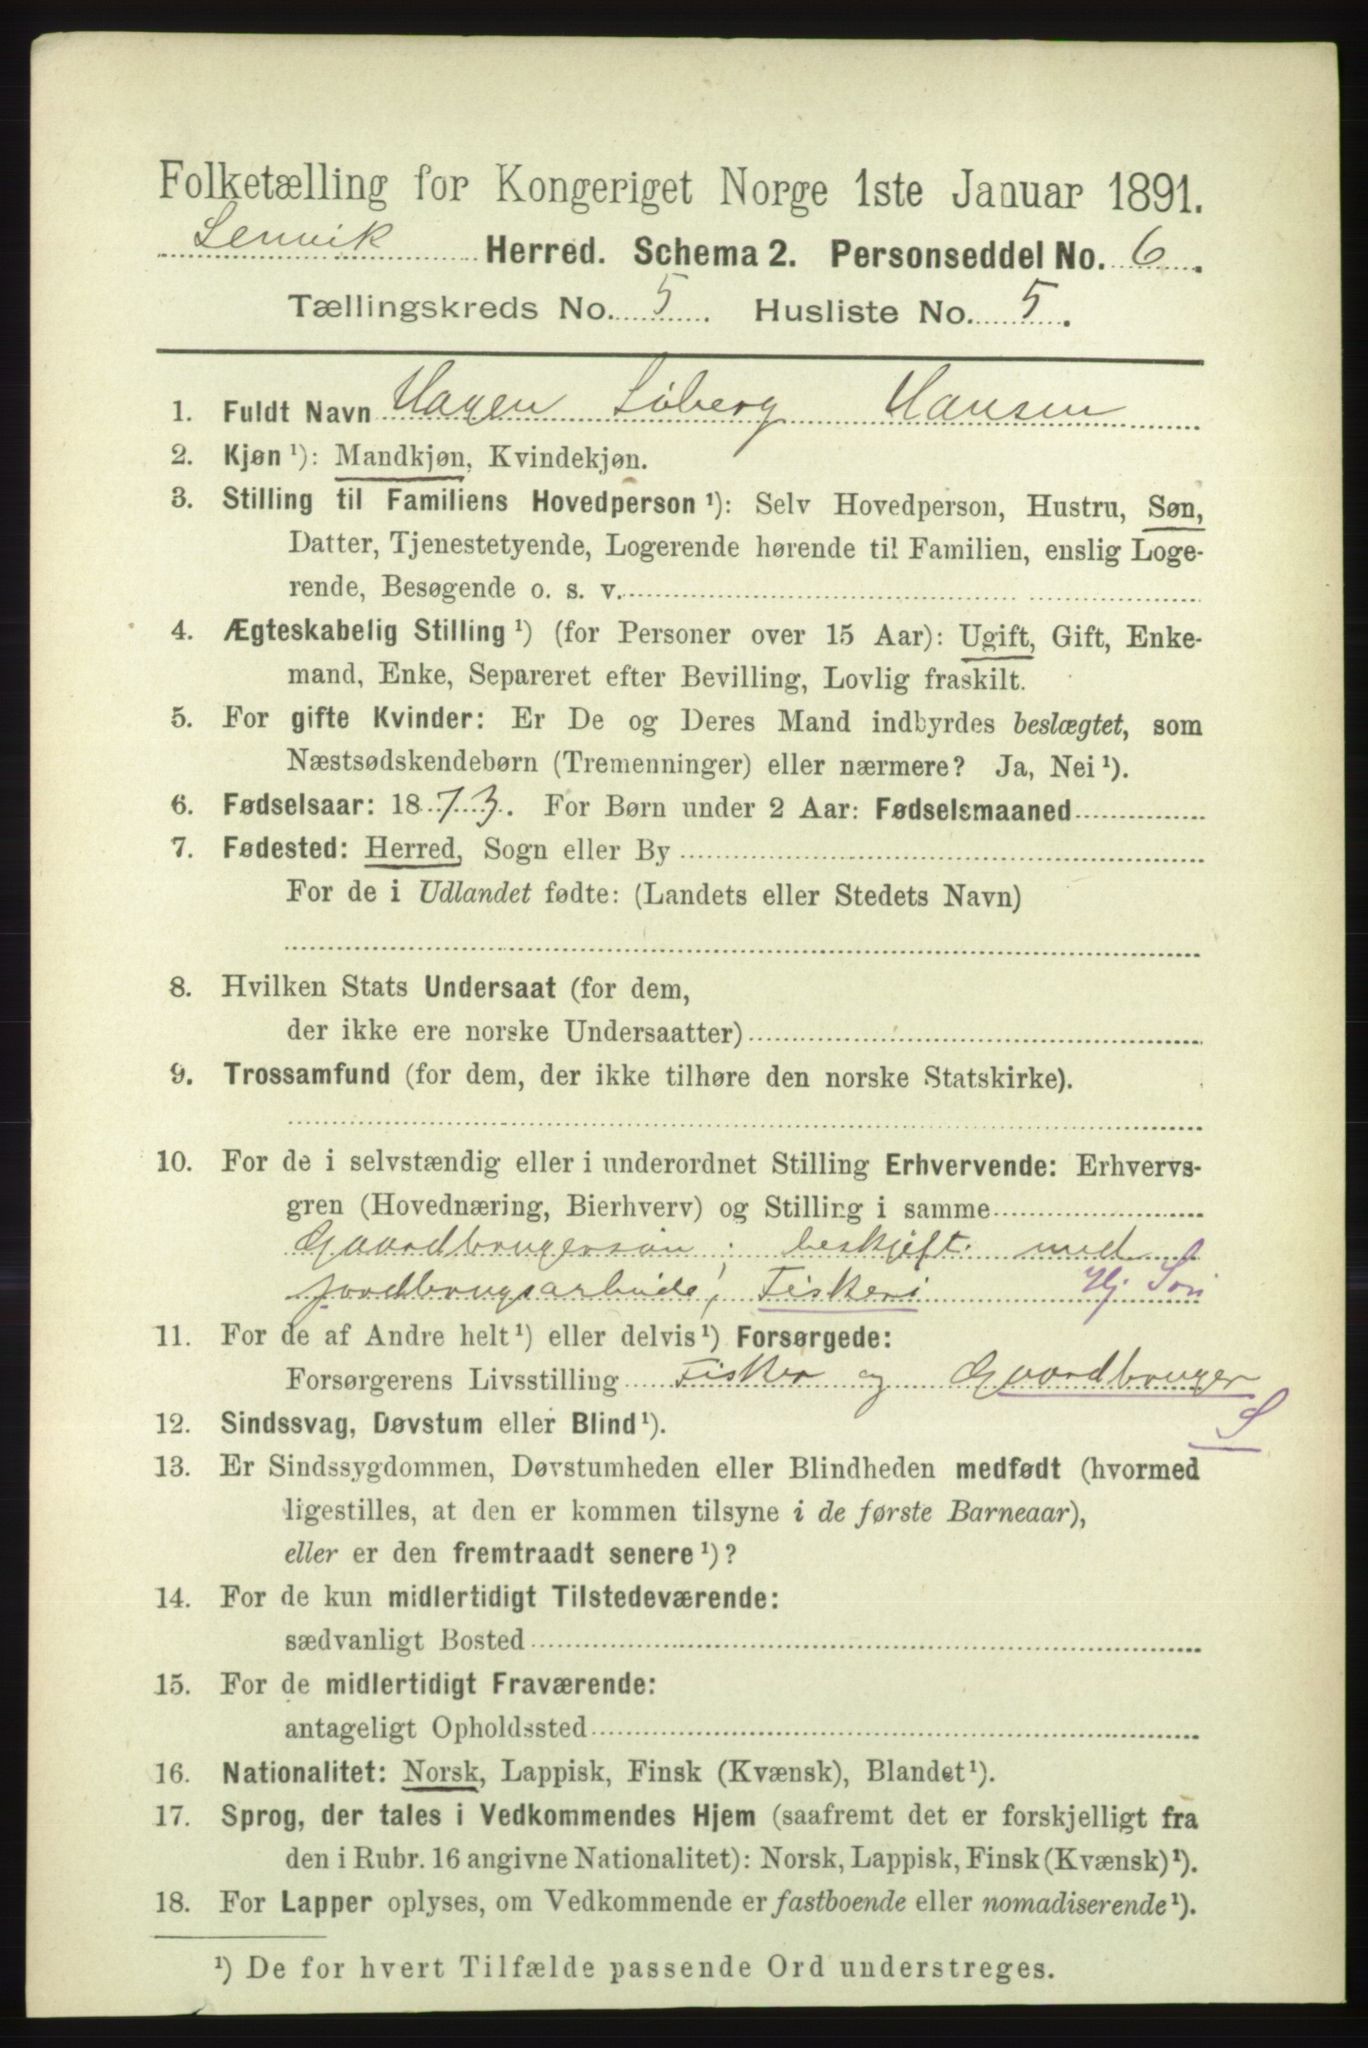 Folketælling for Kongeriget Norge 1ste Januar 1891.
Lenvik Herred. Schema 2. Personseddel No. 6.
Tællingskreds No. 5. Husliste No. 5.
1. Fuldt Navn Hagen Søberg Hansen
2. Kjøn ¹): Mandkjøn, Kvindekjøn.
3. Stilling til Familiens Hovedperson ¹): Selv Hovedperson, Hustru, Søn,
Datter, Tjenestetyende, Logerende hørende til Familien, enslig Loge-
rende, Besøgende o. s. v.
4. Ægteskabelig Stilling ¹) (for Personer over 15 Aar): Ugift, Gift, Enke-
mand, Enke, Separeret efter Bevilling, Lovlig fraskilt.
5. For gifte Kvinder: Er De og Deres Mand indbyrdes beslægtet, som
Næstsødskendebørn (Tremenninger) eller nærmere? Ja, Nei ¹).
6. Fødselsaar: 1873. For Børn under 2 Aar: Fødselsmaaned
7. Fødested: Herred, Sogn eller By
For de i Udlandet fødte: (Landets eller Stedets Navn)
8. Hvilken Stats Undersaat (for dem,
der ikke ere norske Undersaatter)
9. Trossamfund (for dem, der ikke tilhøre den norske Statskirke).
10. For de i selvstændig eller i underordnet Stilling Erhvervende: Erhvervs-
gren (Hovednæring, Bierhverv) og Stilling i samme
Gaardbrugersøn; beskjeft. med
jordbrugsarbeide, Fiskeri Hj Søn
11. For de af Andre helt ¹) eller delvis ¹) Forsørgede:
Forsørgerens Livsstilling Fisker og Gaardbruger
S
12. Sindssvag, Døvstum eller Blind ¹).
13. Er Sindssygdommen, Døvstumheden eller Blindheden medfødt (hvormed
ligestilles, at den er kommen tilsyne i de første Barneaar),
eller er den fremtraadt senere ¹)?
14. For de kun midlertidigt Tilstedeværende:
sædvanligt Bosted
15. For de midlertidigt Fraværende:
antageligt Opholdssted
16. Nationalitet: Norsk, Lappisk, Finsk (Kvænsk), Blandet ¹).
17. Sprog, der tales i Vedkommendes Hjem (saafremt det er forskjelligt fra
den i Rubr. 16 angivne Nationalitet): Norsk, Lappisk, Finsk (Kvænsk) ¹).
18. For Lapper oplyses, om Vedkommende er fastboende eller nomadiserende ¹).
¹) De for hvert Tilfælde passende Ord understreges.